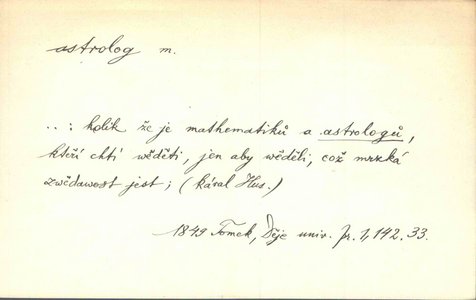 astrolog m.
..: kolik že je mathematiků a astrologů,
kteří chtí wěděti, jen aby wěděli, což mrzká
zwědawost jest; (kázal Hus.)
1849 Tomek, Děje univ. pr. 1, 142. 33.